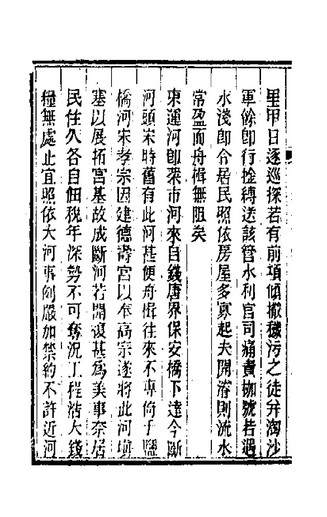 里甲日逐巡探若有前項傾撒穢污之徒并淘沙
軍餘即行拴縛送該管水利官司痛責枷號若遇
水淺即令居民照依房屋多寡起夫開濬則流水
常盈而舟楫無阻矣
東運河即菜市河來自錢唐界保安橋下達今斷
河頭宋時舊有此河甚便舟楫往來不專倚于鹽
橋河宋孝宗因建德壽宮以奉高宗遂將此河填
塞以展拓宮基故成斷河若開復甚為美事奈居
民住久各自佃税年深勢不可奪況工程浩大錢
糧無處止宜照依大河事例嚴加禁約不許近河